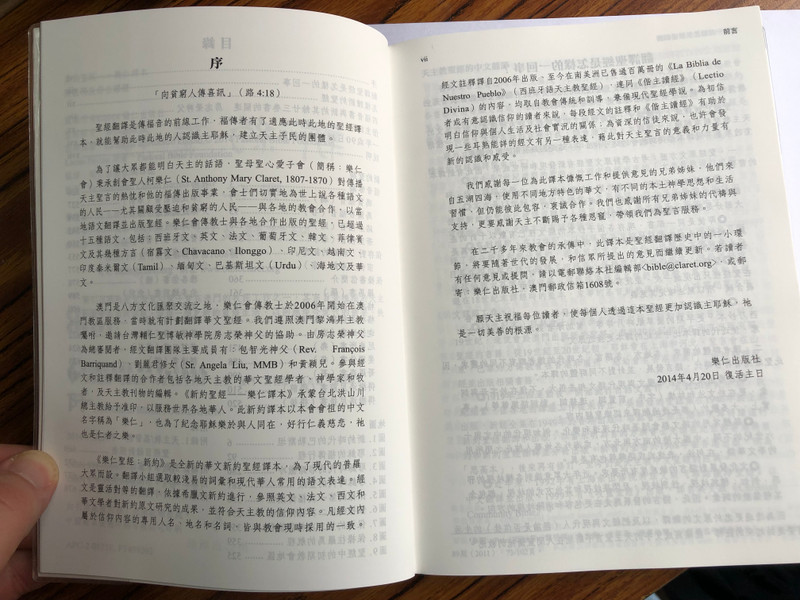 序
「向貧窮人傳喜訊」（路 4:18）
聖經翻譯是傳福音的前線工作，福傳者有了適應此時此地的聖經譯
本，就能幫助此時此地的人認識主耶穌，建立天主子民的團體。
為了讓大眾都能明白天主的話語，聖母聖心愛子會（簡稱：樂仁
會）秉承創會聖人柯樂仁（St. Anthony Mary Claret, 1807-1870）對傳播
天主聖言的熱忱和他的福傳出版事業，會士們切實地為世上說各種語文
的人民——尤其關顧受壓迫和貧窮的人民——與各地的教會合作，以當
地語文翻譯並出版聖經。樂仁會傳教士與各地合作出版的聖經，已超過
十五種語文，包括：西班牙文、英文、法文、葡萄牙文、韓文、菲律賓
文及其幾種方言（宿霧文、Chavacano、Ilonggo）、印尼文、越南文、
印度泰米爾文（Tamil）、緬甸文、巴基斯坦文（Urdu）、海地文及華
文。
澳門是八方文化匯聚交流之地，樂仁會傳教士於2006年開始在澳
門教區服務，當時就有計劃翻譯華文聖經。我們遵照澳門黎鴻昇主教
囑咐，邀請台灣輔仁聖博敏神學院房志榮神父的協助。由房志榮神父
為總審閱者，經文翻譯團隊主要成員有：包智光神父（Rev. François
Barriquand）、劉麗君修女（Sr. Angela Liu, MMB）和黃穎兒。參與經
文和註釋翻譯的合作者包括各地天主教的華文聖經學者、神學家和牧
者，及天主教刊物的編輯。《新約聖經——樂仁譯本》承蒙台北洪山川
總主教給予准印，以服務世界各地華人。此新約譯本以本會會祖的中文
名字稱為「樂仁」，也為了紀念耶穌樂於與人同在，好行仁義慈悲，祂
也是仁者之樂。
《樂仁聖經：新約》是全新的華文新約聖經譯本，為了現代的普羅
大眾而設。翻譯小組選取較淺易的詞彙和現代華人常用的語文表達。經
文是靈活對等的翻譯，依據希臘文新約進行，參照英文、法文、西文和
華文學者對新約原文研究的成果，並符合天主教的信仰內容。凡經文內
屬於信仰內容的專用人名、地名和名詞，皆與教會現時採用的一致。
vii
前言
經文註釋譯自2006年出版，至今在南美洲已售過百萬冊的《La Biblia de
Nuestro Pueblo》（西班牙語天主教聖經），連同《偕主讀經》（Lectio
Divina）的內容，均取自教會傳統和訓導，兼備現代聖經學說。為初信
者或有意認識信仰的讀者來說，每段經文的註釋和《偕主讀經》有助於
明白信仰與個人生活及社會實況的關係；為資深的信徒來說，也許會發
現一些耳熟能詳的經文有另一種表達，藉此對天主聖言的意義和力量有
新的認識和感受。
我們感謝每一位為此譯本慷慨工作和提供意見的兄弟姊妹，他們來
自五湖四海，使用不同地方特色的華文，有不同的本土神學思想和生活
習慣，但仍能彼此包容，衷誠合作。我們也感謝所有兄弟姊妹的代禱與
支持，更要感謝天主不斷賜予各種恩寵，帶領我們為聖言服務。
在二千多年來教會的承傳中，此譯本是聖經翻譯歷史中的一小環
節，將要隨著世代的發展，和信眾所提出的意見而繼續更新。若讀者
有任何意見或提問，請以電郵聯絡本社編輯部<bible@claret.org>，或郵
寄：樂仁出版社，澳門郵政信箱1608號。
願天主祝福每位讀者，使每個人透過這本聖經更加認識主耶穌，祂
是一切美善的根源。
樂仁出版社
2014年4月20日 復活主日